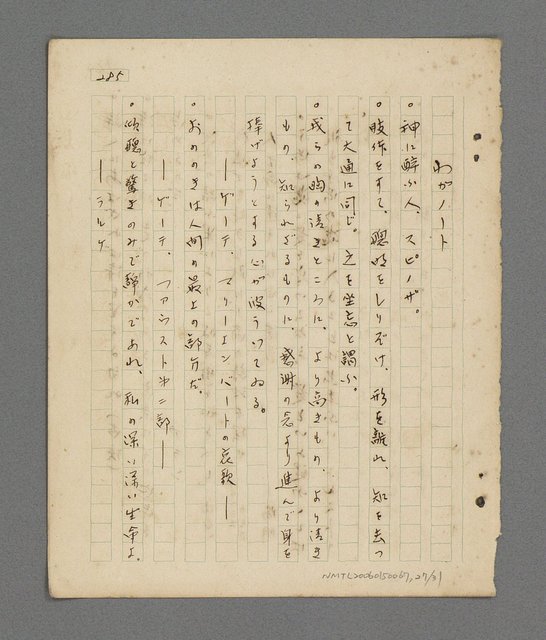 285
わがノート
○神に酔ふ人、スピノザ。
○肢体をすて、聰明をしりぞけ、形を離れ、知を去つ
て大通に同ず。之を坐忘と謂ふ。
○我らの胸の清きところに、より高きもの、より清き
もの、知られざるものに、感謝の念より進んで身を
捧げようとする心が波うつてゐる。
――ゲーテ、マリーエンバートの哀歌――
○おののきは人間の最上の部分だ。
――ゲーテ、ファウスト第二部――
○傾聴と驚きのみで静かであれ、私の深い深い生命よ。
――リルケ
NMTL20060150067, 27/31